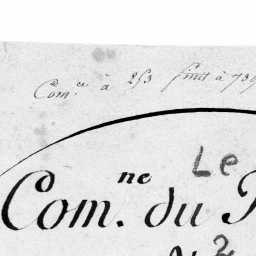 Com.ce à 253 finit à 739
Le
Com.ne du
N 2